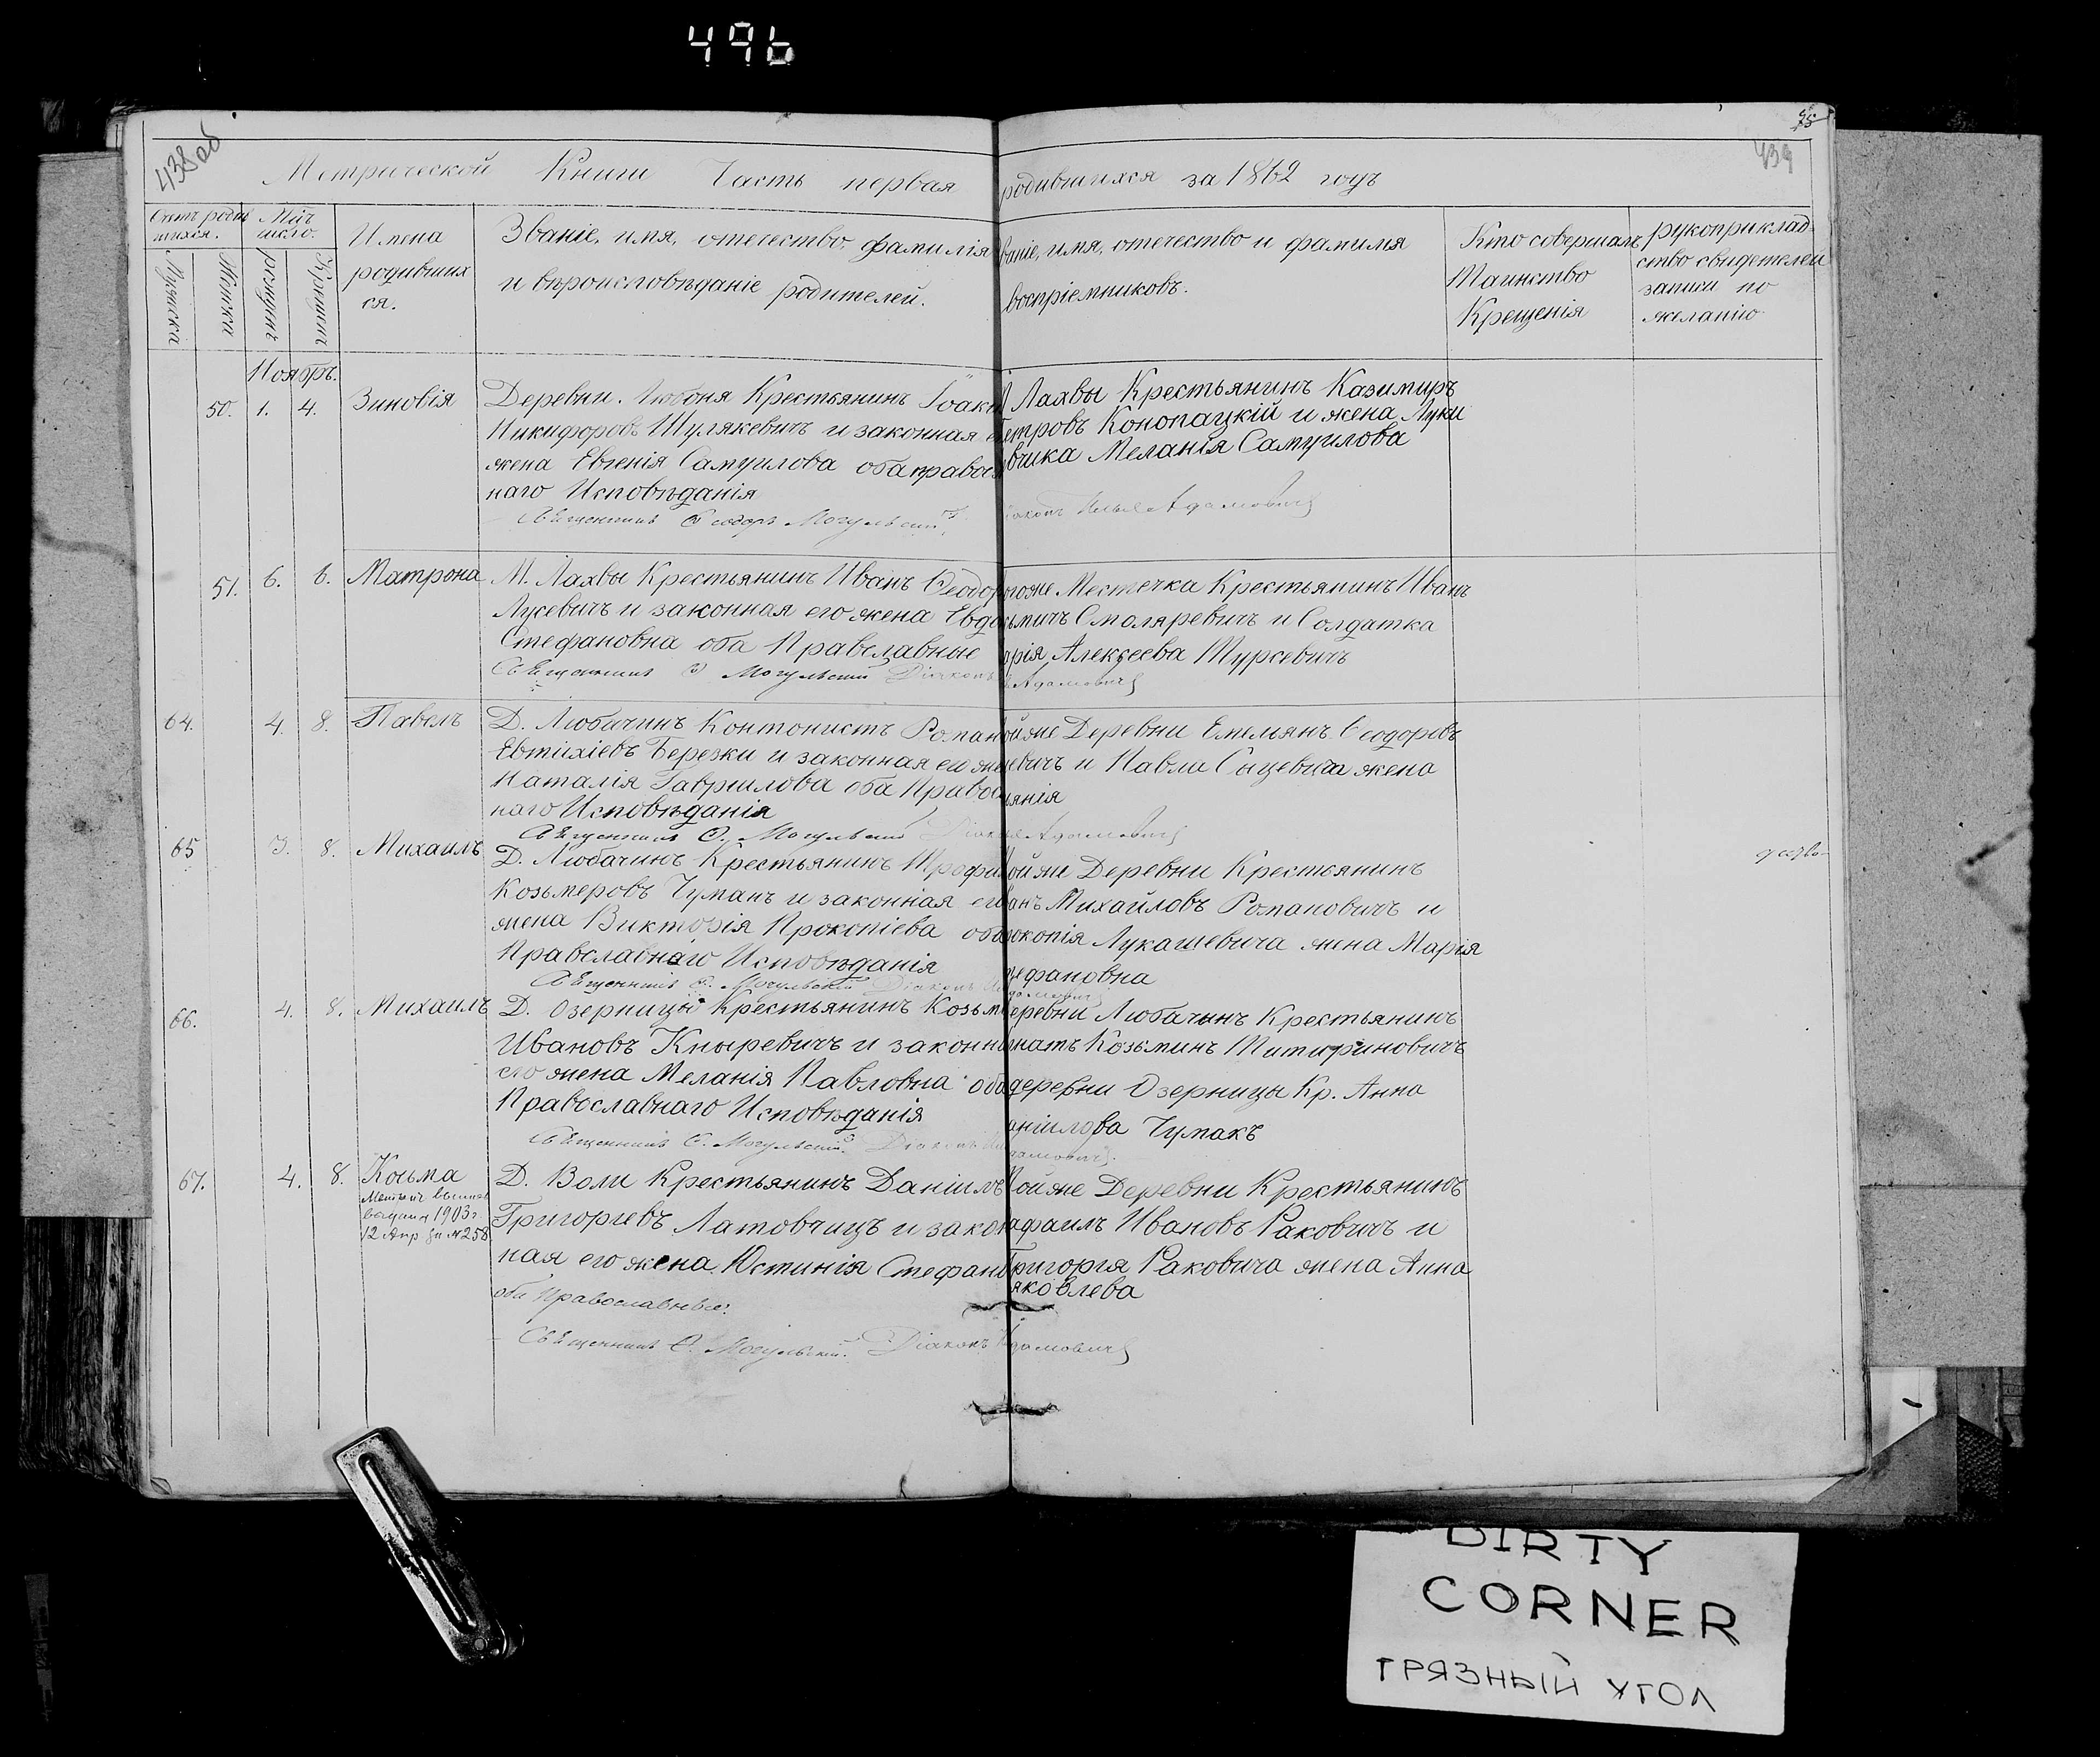 496
438 об
439
Метрической Книги Часть первая родившихся за 1862 годъ
Счетъ родив
шихся.
Мѣс.
число.
Имена
родивших
ся.
Званіе, имя, отечество фамилія
и вѣроисповѣданіе родителей.
Званіе, имя, отечество и фамилія
воспріемниковъ.
Кто совершалъ
Таинство
Крещенія
рукоприклад
ство свидетелей
записи по
желанію
Мужска
Женски
Ноябрь.
50. 1. 4. Зиновія
Деревни Любоня Крестьянинъ Іоаки
Никифоровъ Шулякевичъ и законная е
жена Евгенія Самуилова оба правос
наго Исповѣданія
Священникъ Ѳеодоръ Могульскій
Лахвы Крестьянинъ Казимиръ
етровъ Конопацкій и жена Луки
вчика Меланія Самуилова
Адамовичъ
51. 6. 6. Матрона
М. Лахвы Крестьянинъ Иванъ Ѳеодор
Лусевичъ и законная его жена Евдо
Стефановна оба Православные
Священникъ Ѳ Могульскій Діаконъ
тогоже Местечка Крестьянинъ Иванъ
ьмичъ Смоляревичъ и Солдатка
арія Алексеева Турсевичъ
Адамовичъ
64. 4. 8. Павелъ
Д. Любачинъ Контонистъ Роман
Евтихіевъ Березки и законная его же
Наталія Гавриилова оба Правос
наго Исповѣданія
Священникъ Ѳ. Могульскій Діаконъ Адамовичъ
ойже Деревни Емельянъ Ѳеодоровъ
евичъ и Павла Сыцевича жена
ьянія
65 3. 8. Михаилъ
Д. Любачинъ Крестьянинъ Трофи
Козьмеровъ Чуманъ и законная его
жена Викторія Прокопіева оба
Православнаго Исповѣданія
Священникъ Ѳ. Могульскій Діаконъ
ойже Деревни Крестьянинъ
анъ Михайловъ Романовичъ и
окопія Лукашевича жена Марія
ефановна
Адамовичъ
66. 4. 8. Михаилъ
Д. Озерницы Крестьянинъ Козьм
Ивановъ Кныревичъ и законн
его жена Меланія Павловна оба
Православнаго Исповѣданія
Священникъ Ѳ. Могульскій Діаконъ
еревни Любачынъ Крестьянинъ
натъ Козьминъ Титириновичъ
деревни Озерницы Кр. Анна
аніилова Чумакъ
Адамовичъ
67. 4. 8. Косьма
1903 г.
12 Апр за №258
Д. Воли Крестьянинъ Даніилъ
Григорьевъ Латовчицъ и закон
ная его жена Юстинія Стефано
оба Православные.
Священникъ Ѳ. Могульскій. Діаконъ Адамовичъ
ойже Деревни Крестьянинъ
афаилъ Ивановъ Раковичъ и
Григорія Раковича жена Анна
яковлева
DIRTY
CORNER
ГРЯЗНЫЙ УГОЛ